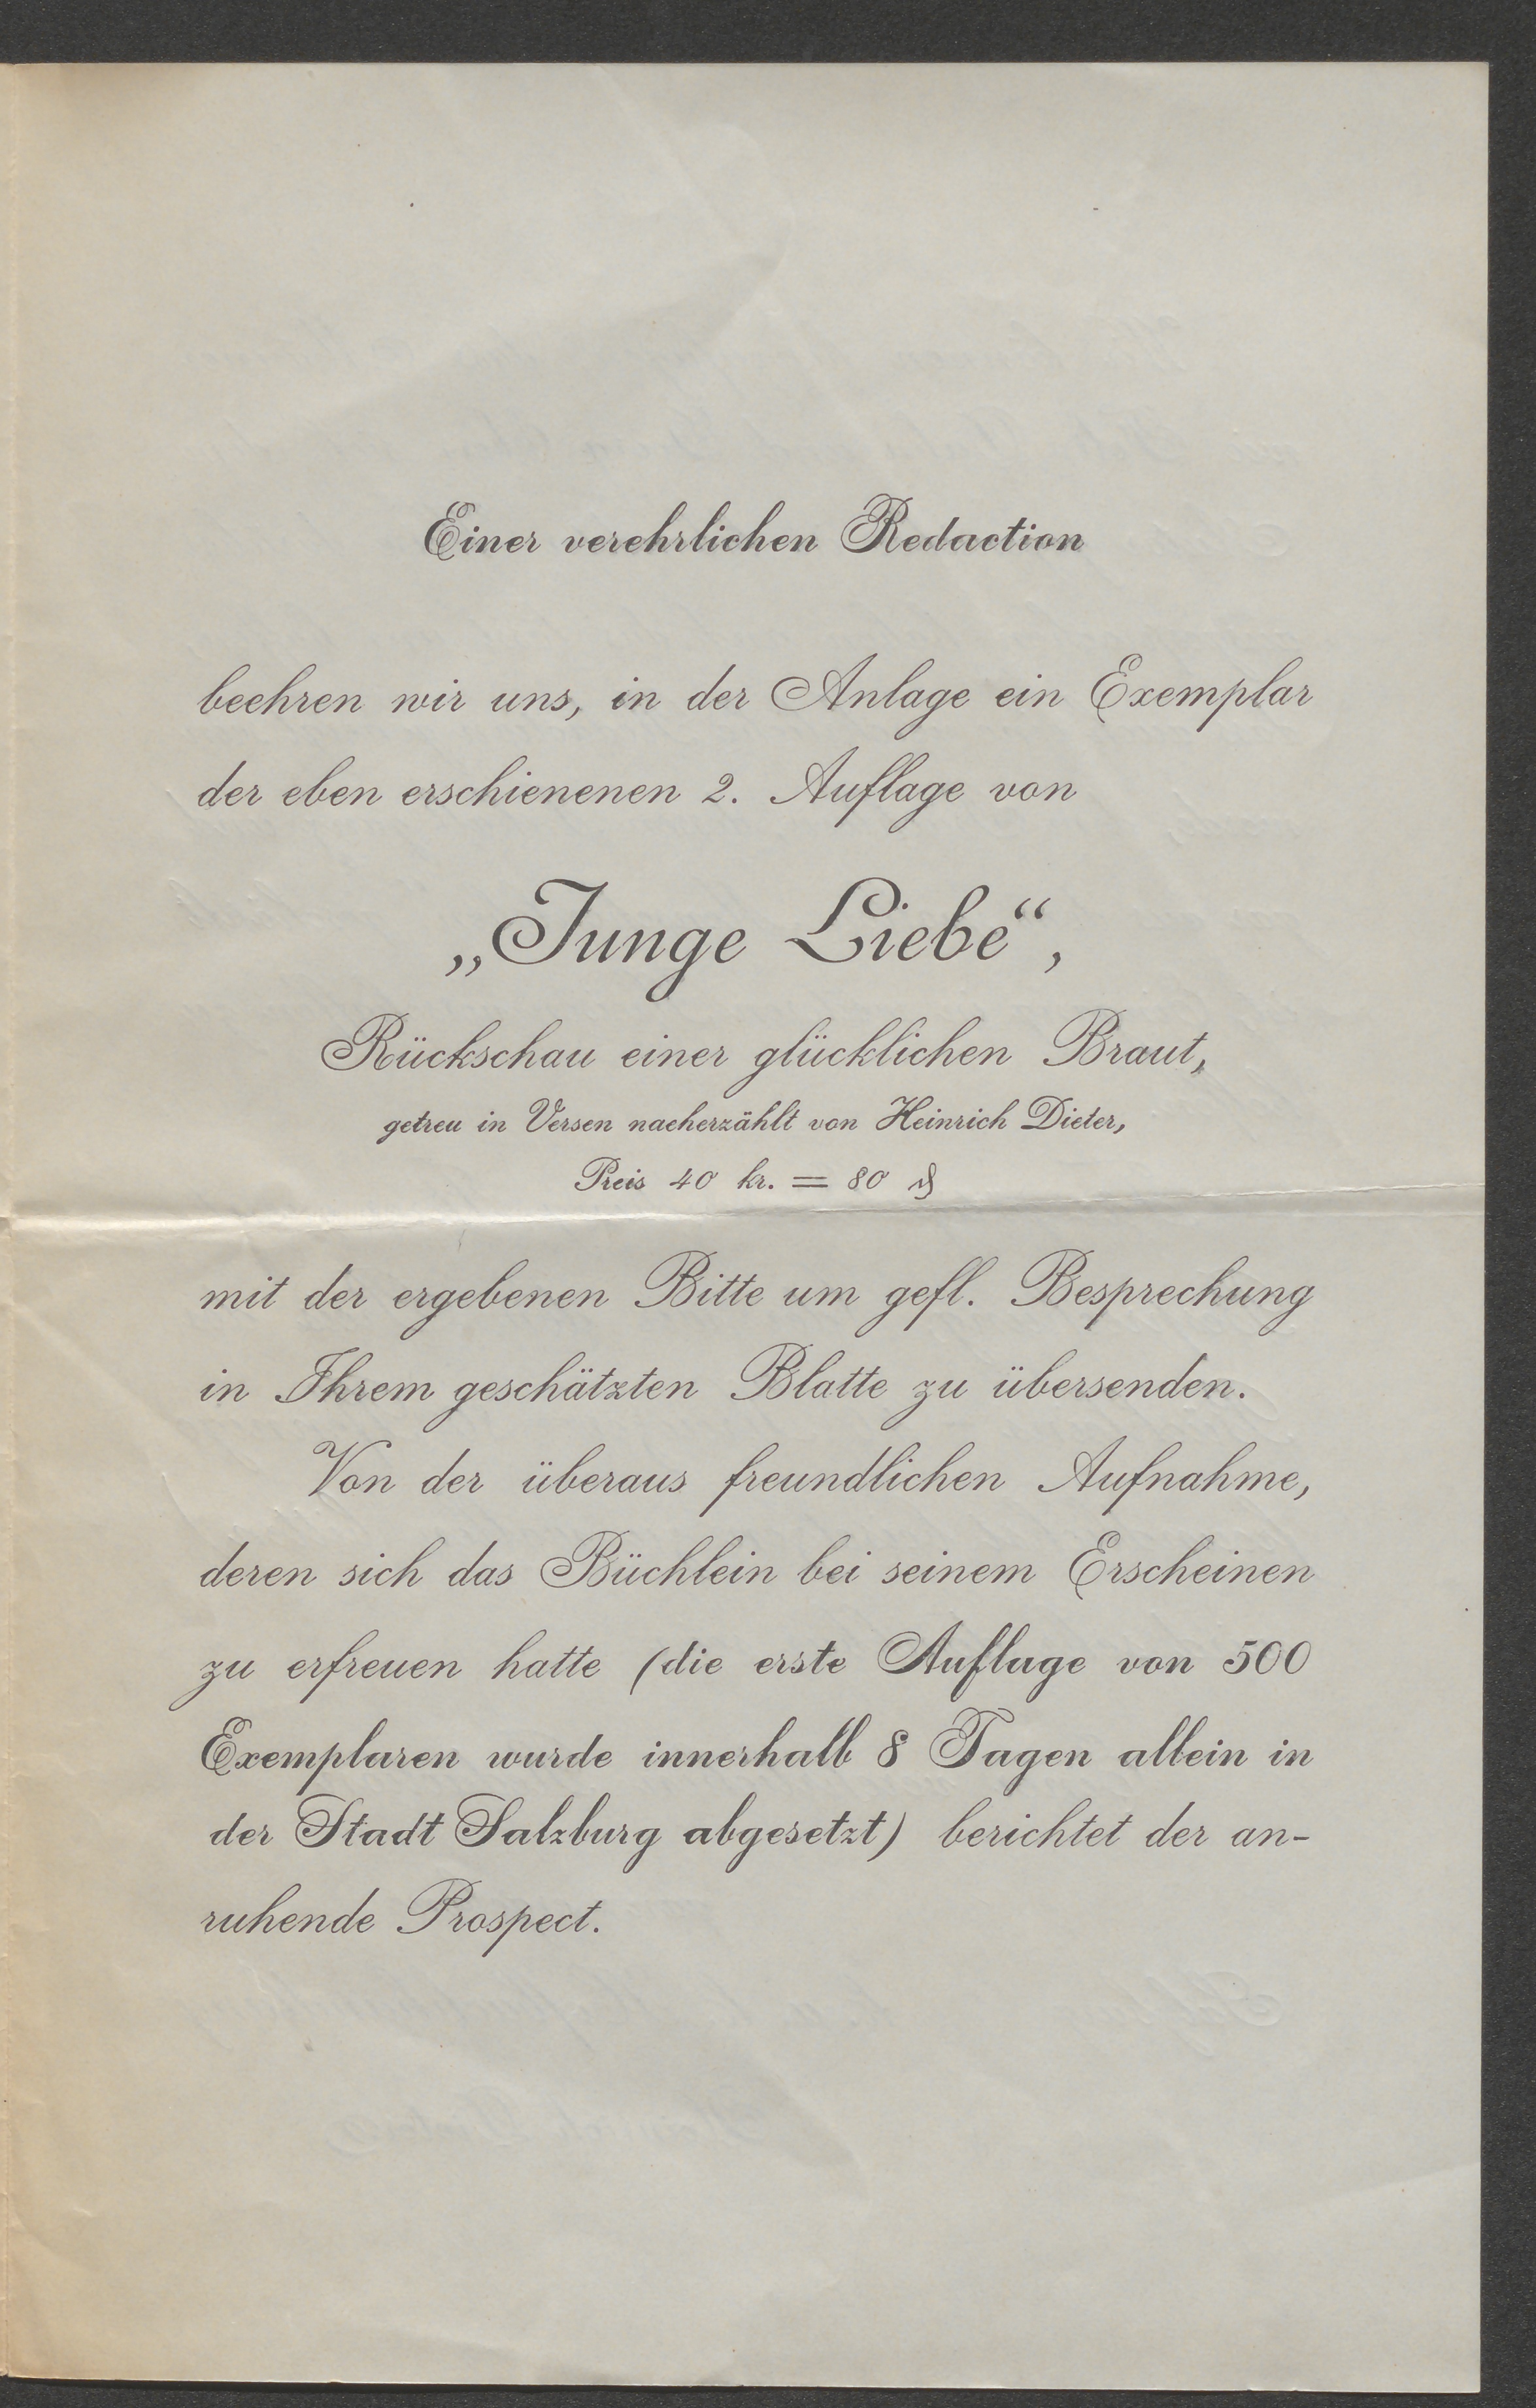 Einer verehrlichen Redaction
beehren wir uns, in der Anlage ein Exemplar
der eben erschienenen 2. Auflage von
„Junge Liebe“,
Rückschau einer glücklichen Braut,
getreu in Versen nacherzählt von Heinrich Dieter,
Preis 40 kr. = 80 ₰
mit der ergebenen Bitte um gefl. Besprechung
in Ihrem geschätzten Blatte zu übersenden.
Von der überaus freundlichen Aufnahme,
deren sich das Büchlein bei seinem Erscheinen
zu erfreuen hatte (die erste Auflage von 500
Exemplaren wurde innerhalb 8 Tagen allein in
der Stadt Salzburg abgesetzt) berichtet der an-
ruhende Prospect.